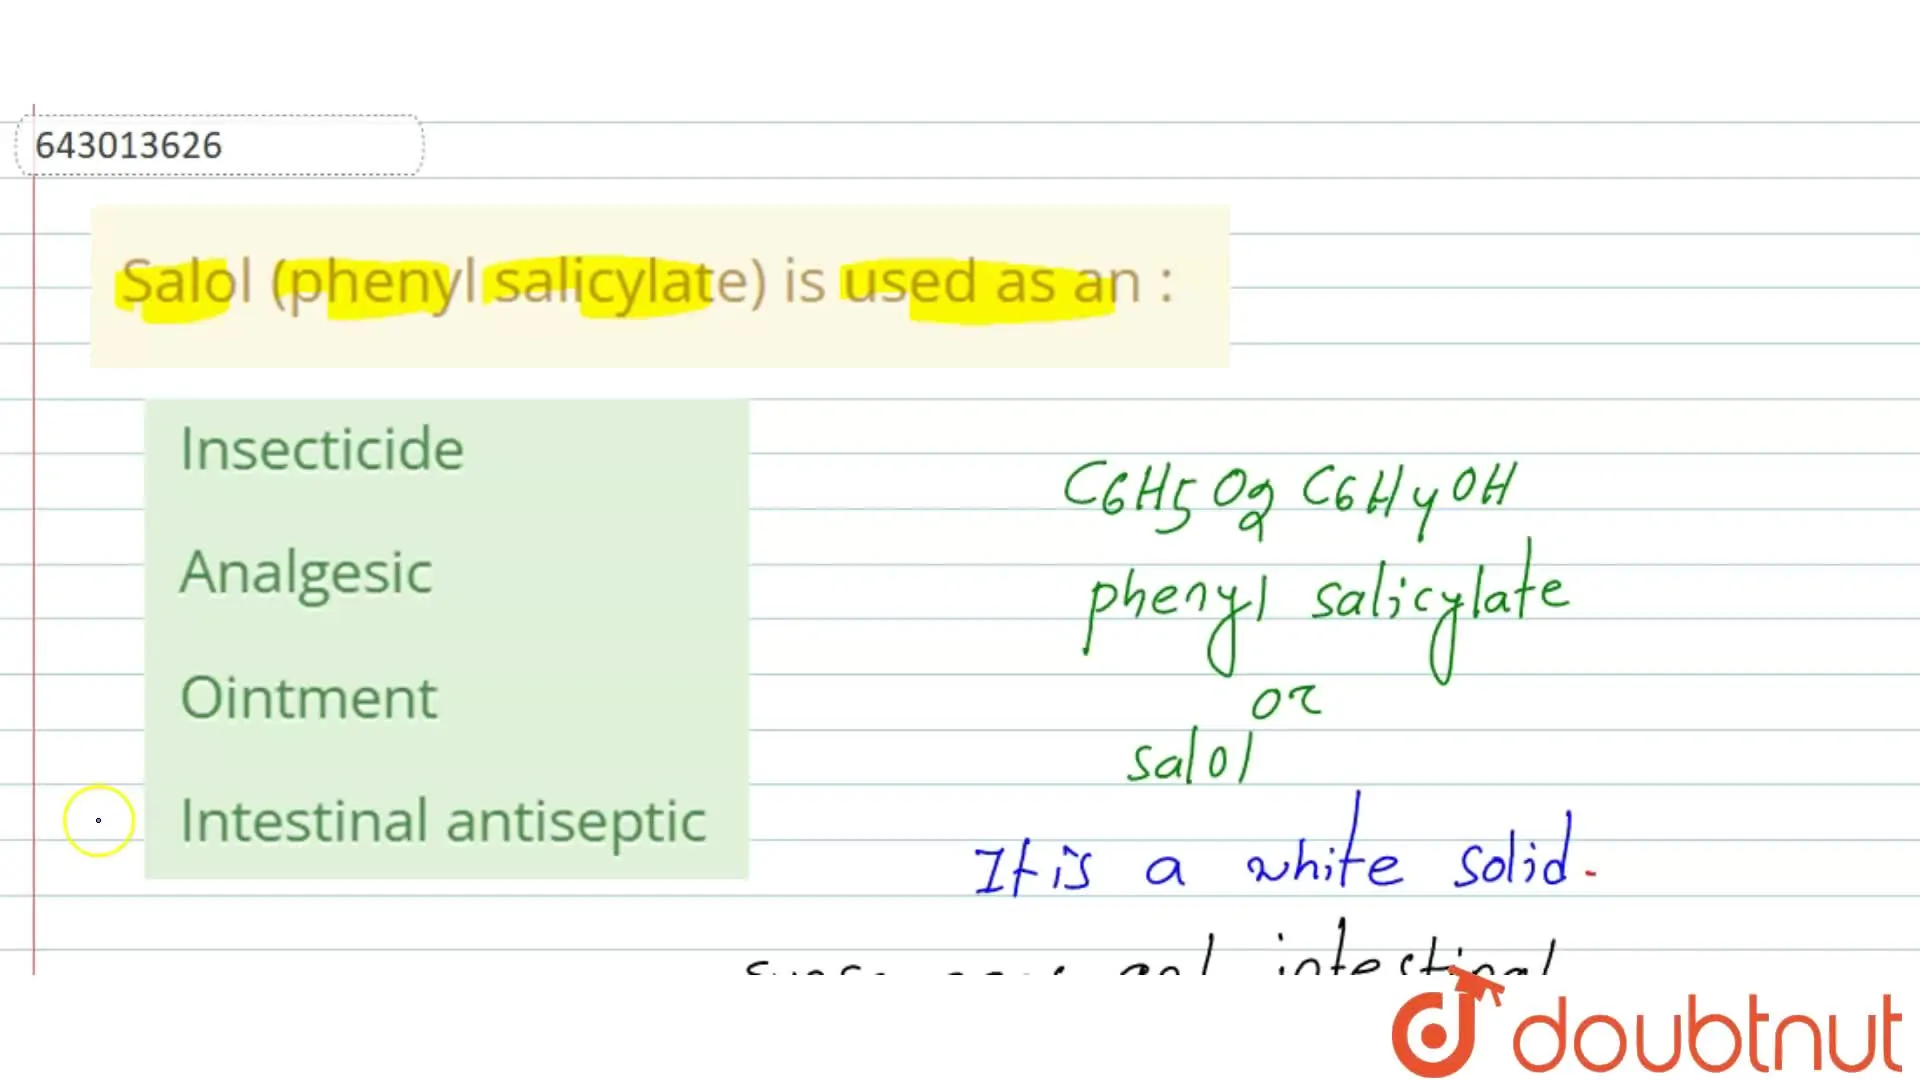 643013626
Salol (phenyl salicylate) is used as an :
Insecticide
Analgesic
Ointment
Intestinal antiseptic
C6H5O2 C6H4OH
phenyl salicylate
or
salol
It is a white solid.
intestinal
doubtnut